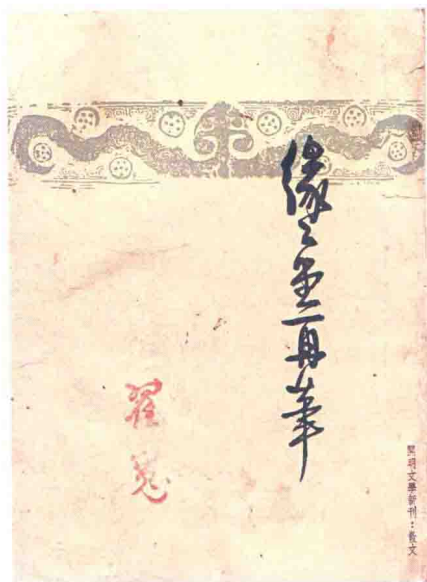 緣々堂再筆
開明文學新刊：散文